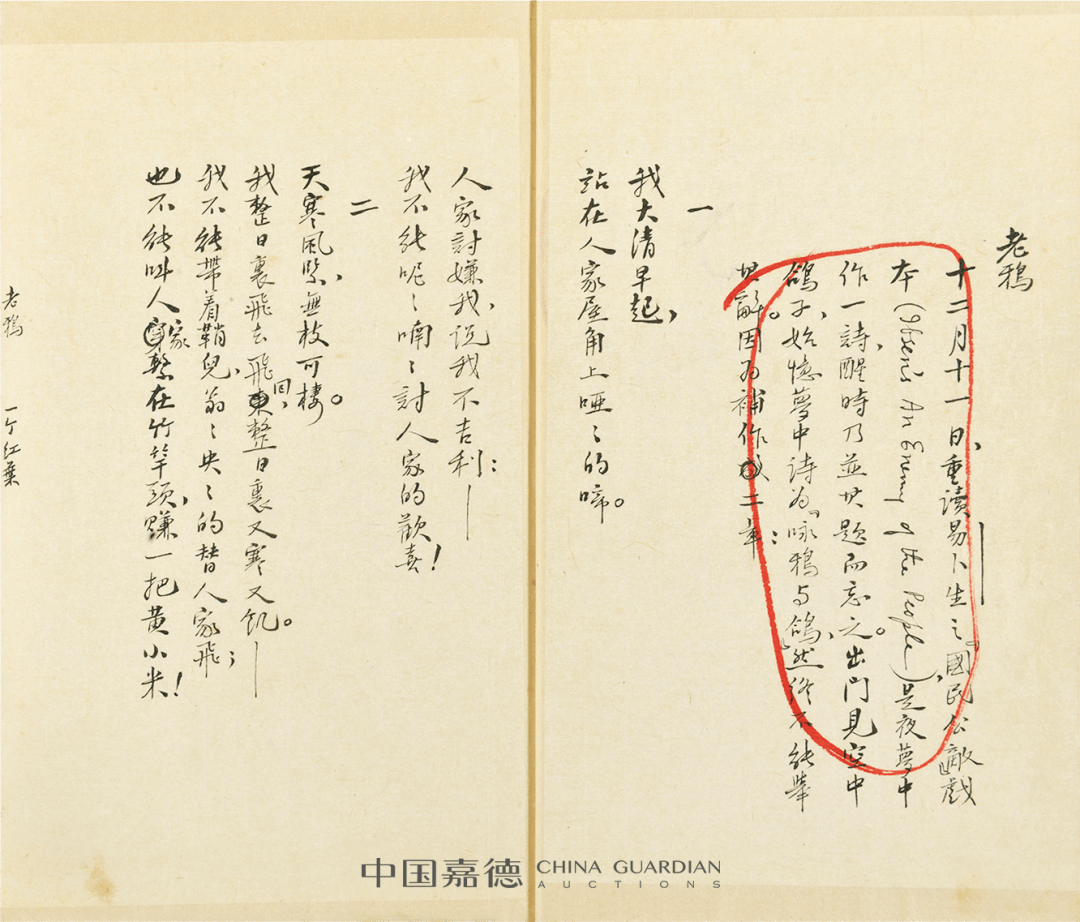 老鴉
十二月十一日,重讀易卜生之『國民公敵』戲
本(Ibsen's An Enemy of the People),是夜夢中
作一詩,醒時乃並其題而忘之。出門見空中
鴿子,始憶夢中詩為『咏鴉与鴿』,然終不能舉
其辭。因為補作成二章:
一
我大清早起,
站在人家屋角上啞〻的啼。
人家討嫌我,說我不吉利:—
我不能呢〻喃〻討人家的歡喜!
二
天寒風緊,無枝可棲。
我整日裏飛去飛回,整日裏又寒又飢。—
我不能帶着鞘兒,翁〻央〻的替人家飛;
也不能叫人家繫在竹竿頭,賺一把黄小米!
老鴉 一个红葉
中国嘉德 CHINA GUARDIAN
AUCTIONS